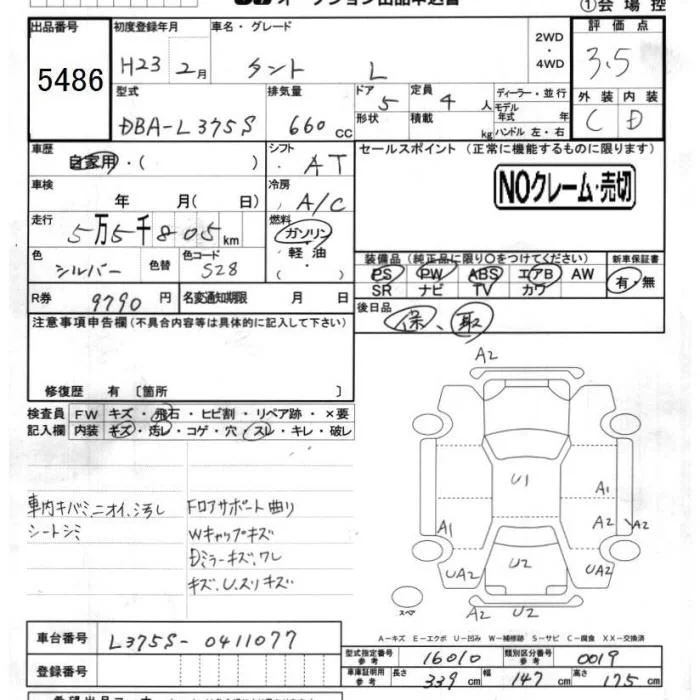 オークション出品申込書
①会場控
出品番号 初度登録年月 車名・グレード 2WD・4WD 評価点
5486 H23 2月 タント L 3.5
型式 排気量 ドア 定員 ディーラー・並行 外装 内装
DBA-L375S 660cc 5 4人 モデル年式 年 C D
形状 積載 kg ハンドル 左・右
車歴 自家用・( ) シフト ・AT セールスポイント (正常に機能するものに限ります)
車検 年 月( 日) 冷房 A/C NOクレーム・売切
走行 5万5千805km 燃料 ガソリン・軽油
色 シルバー 色替 色コード S28
装備品 (純正品に限り○をつけてください) 新車保証書
PS PW ABS エアB AW 有・無
SR ナビ TV カワ
R券 9790円 名変通知期限 月 日 後日品
保、取
注意事項申告欄(不具合内容等は具体的に記入して下さい)
修復歴 有 〔箇所 〕
検査員 FW キズ・飛石・ヒビ割・リペア跡・×要
記入欄 内装 キズ・汚レ・コゲ・穴・スレ・キレ・破レ
車内キバミ、ニオイ、汚し
シートシミ
Fロアサポート曲り
Wキャップキズ
Dミラーキズ、ワレ
キズ、U、スリキズ
A2
U1
A1
A2
A2
A1
UA2
U2
UA2
スペア
A2
U2
A-キズ E-エクボ U-凹み W-補修跡 S-サビ C-腐食 XX-交換済
車台番号 L375S-0411077
型式指定番号 参考 16010 類別区分番号 参考 0019
登録番号
車庫証明用 参考 長さ 339cm 幅 147cm 高さ 175cm
希望出品コーナー